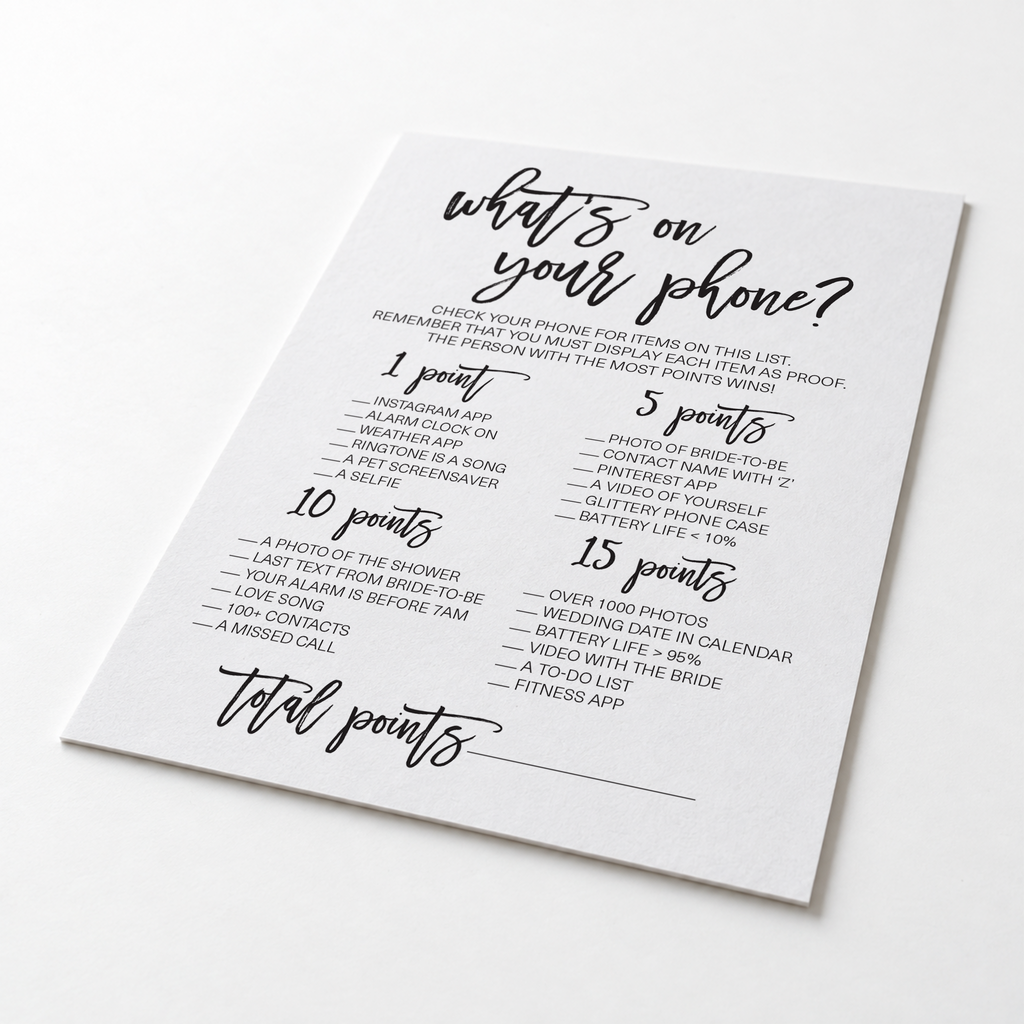 what's on
your phone?
CHECK YOUR PHONE FOR ITEMS ON THIS LIST.
REMEMBER THAT YOU MUST DISPLAY EACH ITEM AS PROOF.
THE PERSON WITH THE MOST POINTS WINS!
1 point
— INSTAGRAM APP
— ALARM CLOCK ON
— WEATHER APP
— RINGTONE IS A SONG
— A PET SCREENSAVER
— A SELFIE
5 points
— PHOTO OF BRIDE-TO-BE
— CONTACT NAME WITH 'Z'
— PINTEREST APP
— A VIDEO OF YOURSELF
— GLITTERY PHONE CASE
— BATTERY LIFE < 10%
10 points
— A PHOTO OF THE SHOWER
— LAST TEXT FROM BRIDE-TO-BE
— YOUR ALARM IS BEFORE 7AM
— LOVE SONG
— 100+ CONTACTS
— A MISSED CALL
15 points
— OVER 1000 PHOTOS
— WEDDING DATE IN CALENDAR
— BATTERY LIFE > 95%
— VIDEO WITH THE BRIDE
— A TO-DO LIST
— FITNESS APP
total points